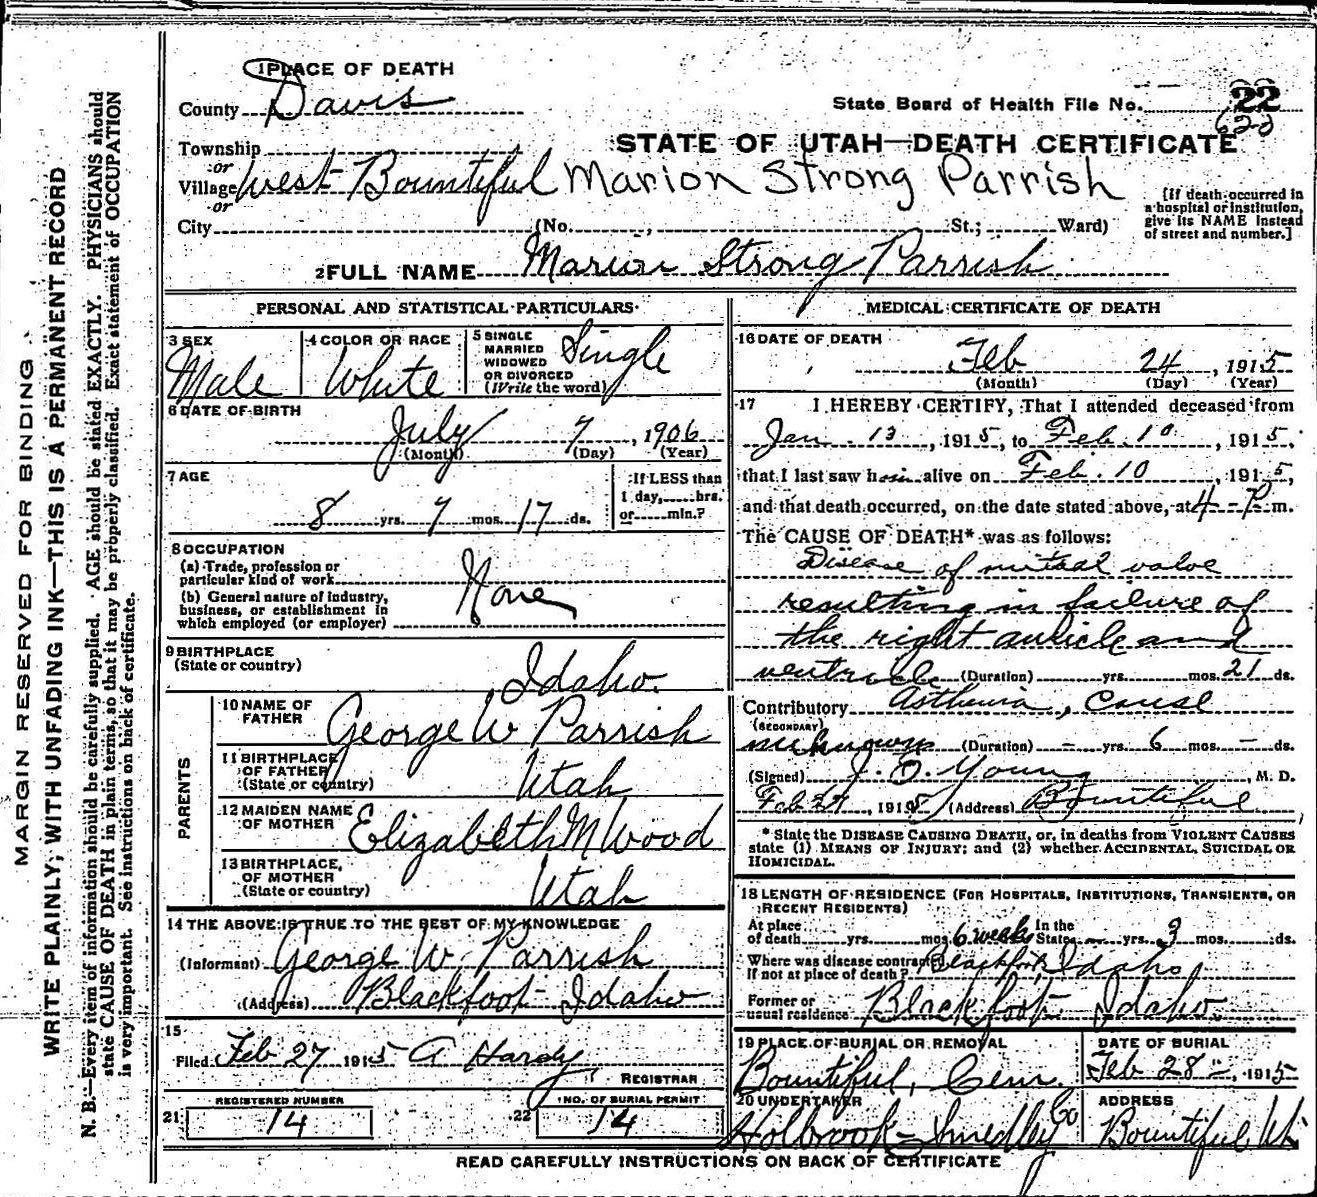 1 PLACE OF DEATH
County Davis
State Board of Health File No. 22
620
Township
or
Village West Bountiful
or
City (No. , St.; Ward)
STATE OF UTAH—DEATH CERTIFICATE
Marion Strong Parrish
[If death occurred in
a hospital or institution,
give its NAME instead
of street and number.]
2 FULL NAME Marion Strong Parrish
PERSONAL AND STATISTICAL PARTICULARS
3 SEX
Male
4 COLOR OR RACE
White
5 SINGLE
MARRIED
WIDOWED
OR DIVORCED
(Write the word)
Single
6 DATE OF BIRTH
July 7, 1906
(Month) (Day) (Year)
7 AGE
8 yrs. 7 mos. 17 ds.
If LESS than
1 day, hrs.
or min.?
8 OCCUPATION
(a) Trade, profession or
particular kind of work
(b) General nature of industry,
business, or establishment in
which employed (or employer)
None
9 BIRTHPLACE
(State or country)
Idaho.
PARENTS
10 NAME OF
FATHER
George W Parrish
11 BIRTHPLACE
OF FATHER
(State or country)
Utah
12 MAIDEN NAME
OF MOTHER
Elizabeth M Wood
13 BIRTHPLACE,
OF MOTHER
(State or country)
Utah
14 THE ABOVE IS TRUE TO THE BEST OF MY KNOWLEDGE
(Informant) George W. Parrish
(Address) Blackfoot Idaho
15
Filed Feb 27 1915 A Hardy
REGISTRAR
21 REGISTERED NUMBER
14
22 NO. OF BURIAL PERMIT
14
MEDICAL CERTIFICATE OF DEATH
16 DATE OF DEATH
Feb 24, 1915
(Month) (Day) (Year)
17 I HEREBY CERTIFY, That I attended deceased from
Jan. 13, 1915, to Feb. 10, 1915,
that I last saw him alive on Feb. 10, 1915,
and that death occurred, on the date stated above, at 4 - P. m.
The CAUSE OF DEATH* was as follows:
Disease of mitral valve
resulting in failure of
the right auricle and
ventricle (Duration) yrs. mos. 21 ds.
Contributory Asthenia, Cause
(SECONDARY)
unknown (Duration) - yrs. 6 mos. - ds.
(Signed) J. O. Young, M. D.
Feb 27, 1915 (Address) Bountiful
* State the DISEASE CAUSING DEATH, or, in deaths from VIOLENT CAUSES
state (1) MEANS OF INJURY; and (2) whether ACCIDENTAL, SUICIDAL OR
HOMICIDAL.
18 LENGTH OF RESIDENCE (FOR HOSPITALS, INSTITUTIONS, TRANSIENTS, OR
RECENT RESIDENTS)
At place
of death yrs. mos. 6 weeks In the
State yrs. 3 mos. ds.
Where was disease contracted
If not at place of death? Blackfoot, Idaho
Former or
usual residence Blackfoot Idaho.
19 PLACE OF BURIAL OR REMOVAL
Bountiful, Cem.
DATE OF BURIAL
Feb 28, 1915
20 UNDERTAKER
Holbrook-Smedley Co
ADDRESS
Bountiful Ut
READ CAREFULLY INSTRUCTIONS ON BACK OF CERTIFICATE
MARGIN RESERVED FOR BINDING
WRITE PLAINLY, WITH UNFADING INK—THIS IS A PERMANENT RECORD
N. B.—Every item of information should be carefully supplied. AGE should be stated EXACTLY. PHYSICIANS should
state CAUSE OF DEATH in plain terms, so that it may be properly classified. Exact statement of OCCUPATION
is very important. See instructions on back of certificate.